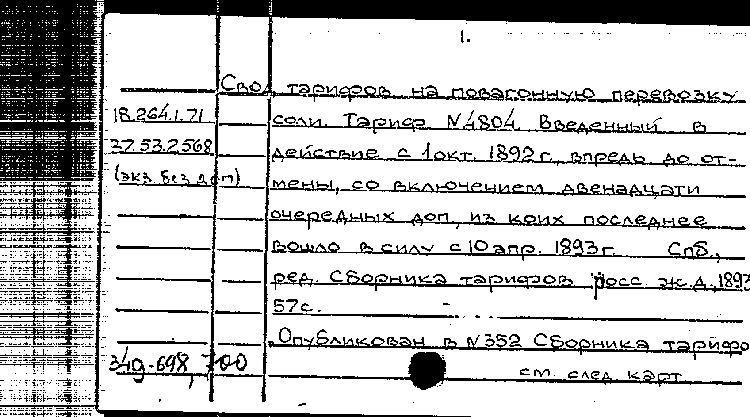 1.
Свод тарифов на повагонную перевозку
18.264.1.71 соли. Тариф N4804. Введенный в
37.53.2.568 действие с 1 окт. 1892 г., впредь до от-
(экз. без доп) мены, со включением двенадцати
очередных доп., из коих последнее
вошло в силу с 10 апр. 1893 г. Спб.,
ред. Сборника тарифов росс. ж.д., 1893
57 с.
Опубликован в N352 Сборника тарифо
349-698, 700 см. след. карт